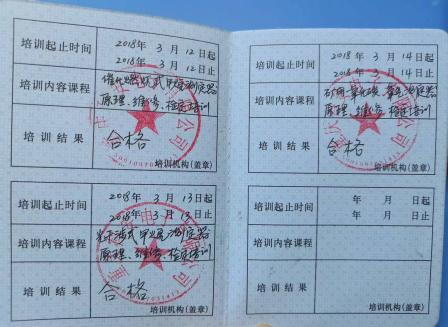 培训起止时间
2018年 3月 12日起
2018年 3月 12日止
培训内容课程
催化燃烧式甲烷测定器
原理、维修、检定培训
培训结果
合格
培训机构(盖章)
培训起止时间
2018年 3月 13日起
2018年 3月 13日止
培训内容课程
光干涉式甲烷测定器
原理、维修、检定培训
培训结果
合格
培训机构(盖章)
培训起止时间
2018年 3月 14日起
2018年 3月 14日止
培训内容课程
矿用氧化碳 测定器
原理、维修、检定培训
培训结果
合格
培训机构(盖章)
培训起止时间
年 月 日起
年 月 日止
培训内容课程
培训结果
培训机构(盖章)